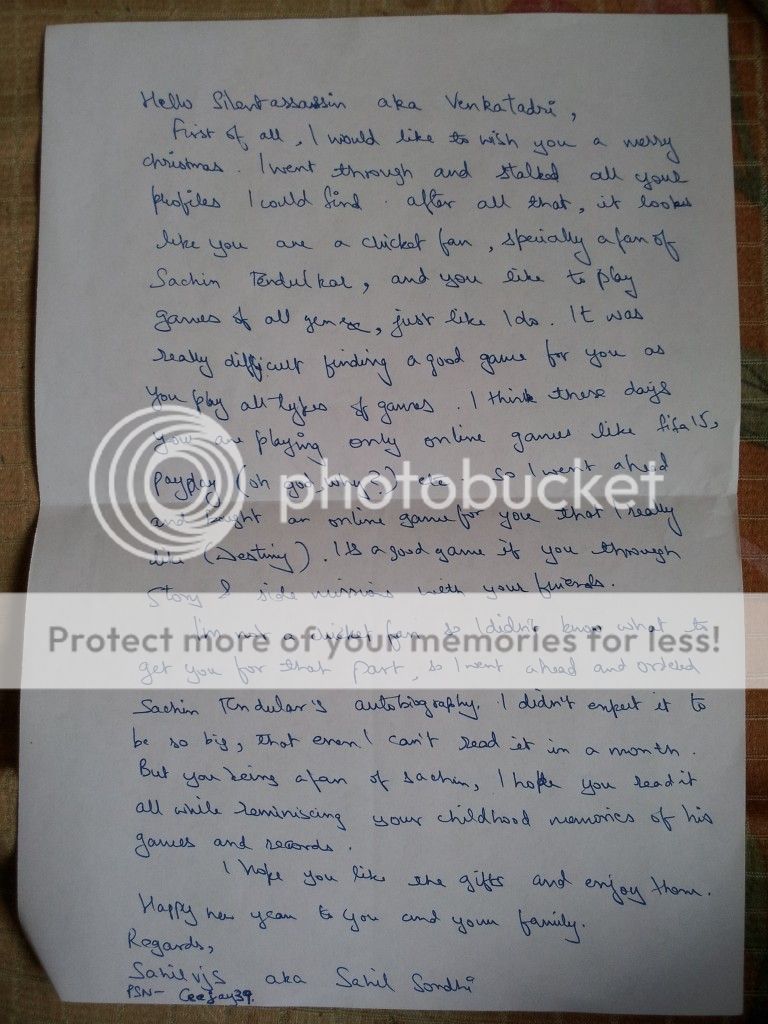 Hello Silentassassin aka Venkatadri,
First of all, I would like to wish you a merry
christmas. I went through and stalked all your
profiles I could find. after all that, it looks
like you are a cricket fan, specially a fan of
Sachin Tendulkar, and you like to play
games of all genre, just like I do. It was
really difficult finding a good game for you as
you play all types of games. I think these days
you are playing only online games like fifa15,
payday (oh god, why?) etc. So I went ahead
and bought an online game for you that I really
like (Destiny). It is a good game if you through
story & side missions with your friends.
photobucket
Protect more of your memories for less!
I'm not a cricket fan so I didn't know what to
get you for that part, so I went ahead and ordered
Sachin Tendular's autobiography. I didn't expect it to
be so big, that even I can't read it in a month.
But you being a fan of sachin, I hope you read it
all while reminiscing your childhood memories of his
games and records.
I hope you like the gifts and enjoy them.
Happy new year to you and your family.
Regards,
Sahilvjs aka Sahil Sondhi
PSN- Ceejay39.